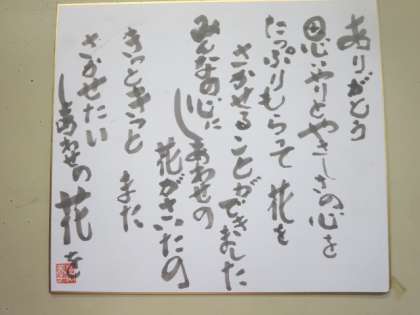 ありがとう
思いやりとやさしさの心を
たっぷりもらって花を
さかせることができました
みんなの心に
しあわせの
花がさいたの
きっときっと
また
さかせたい
しあわせの花を